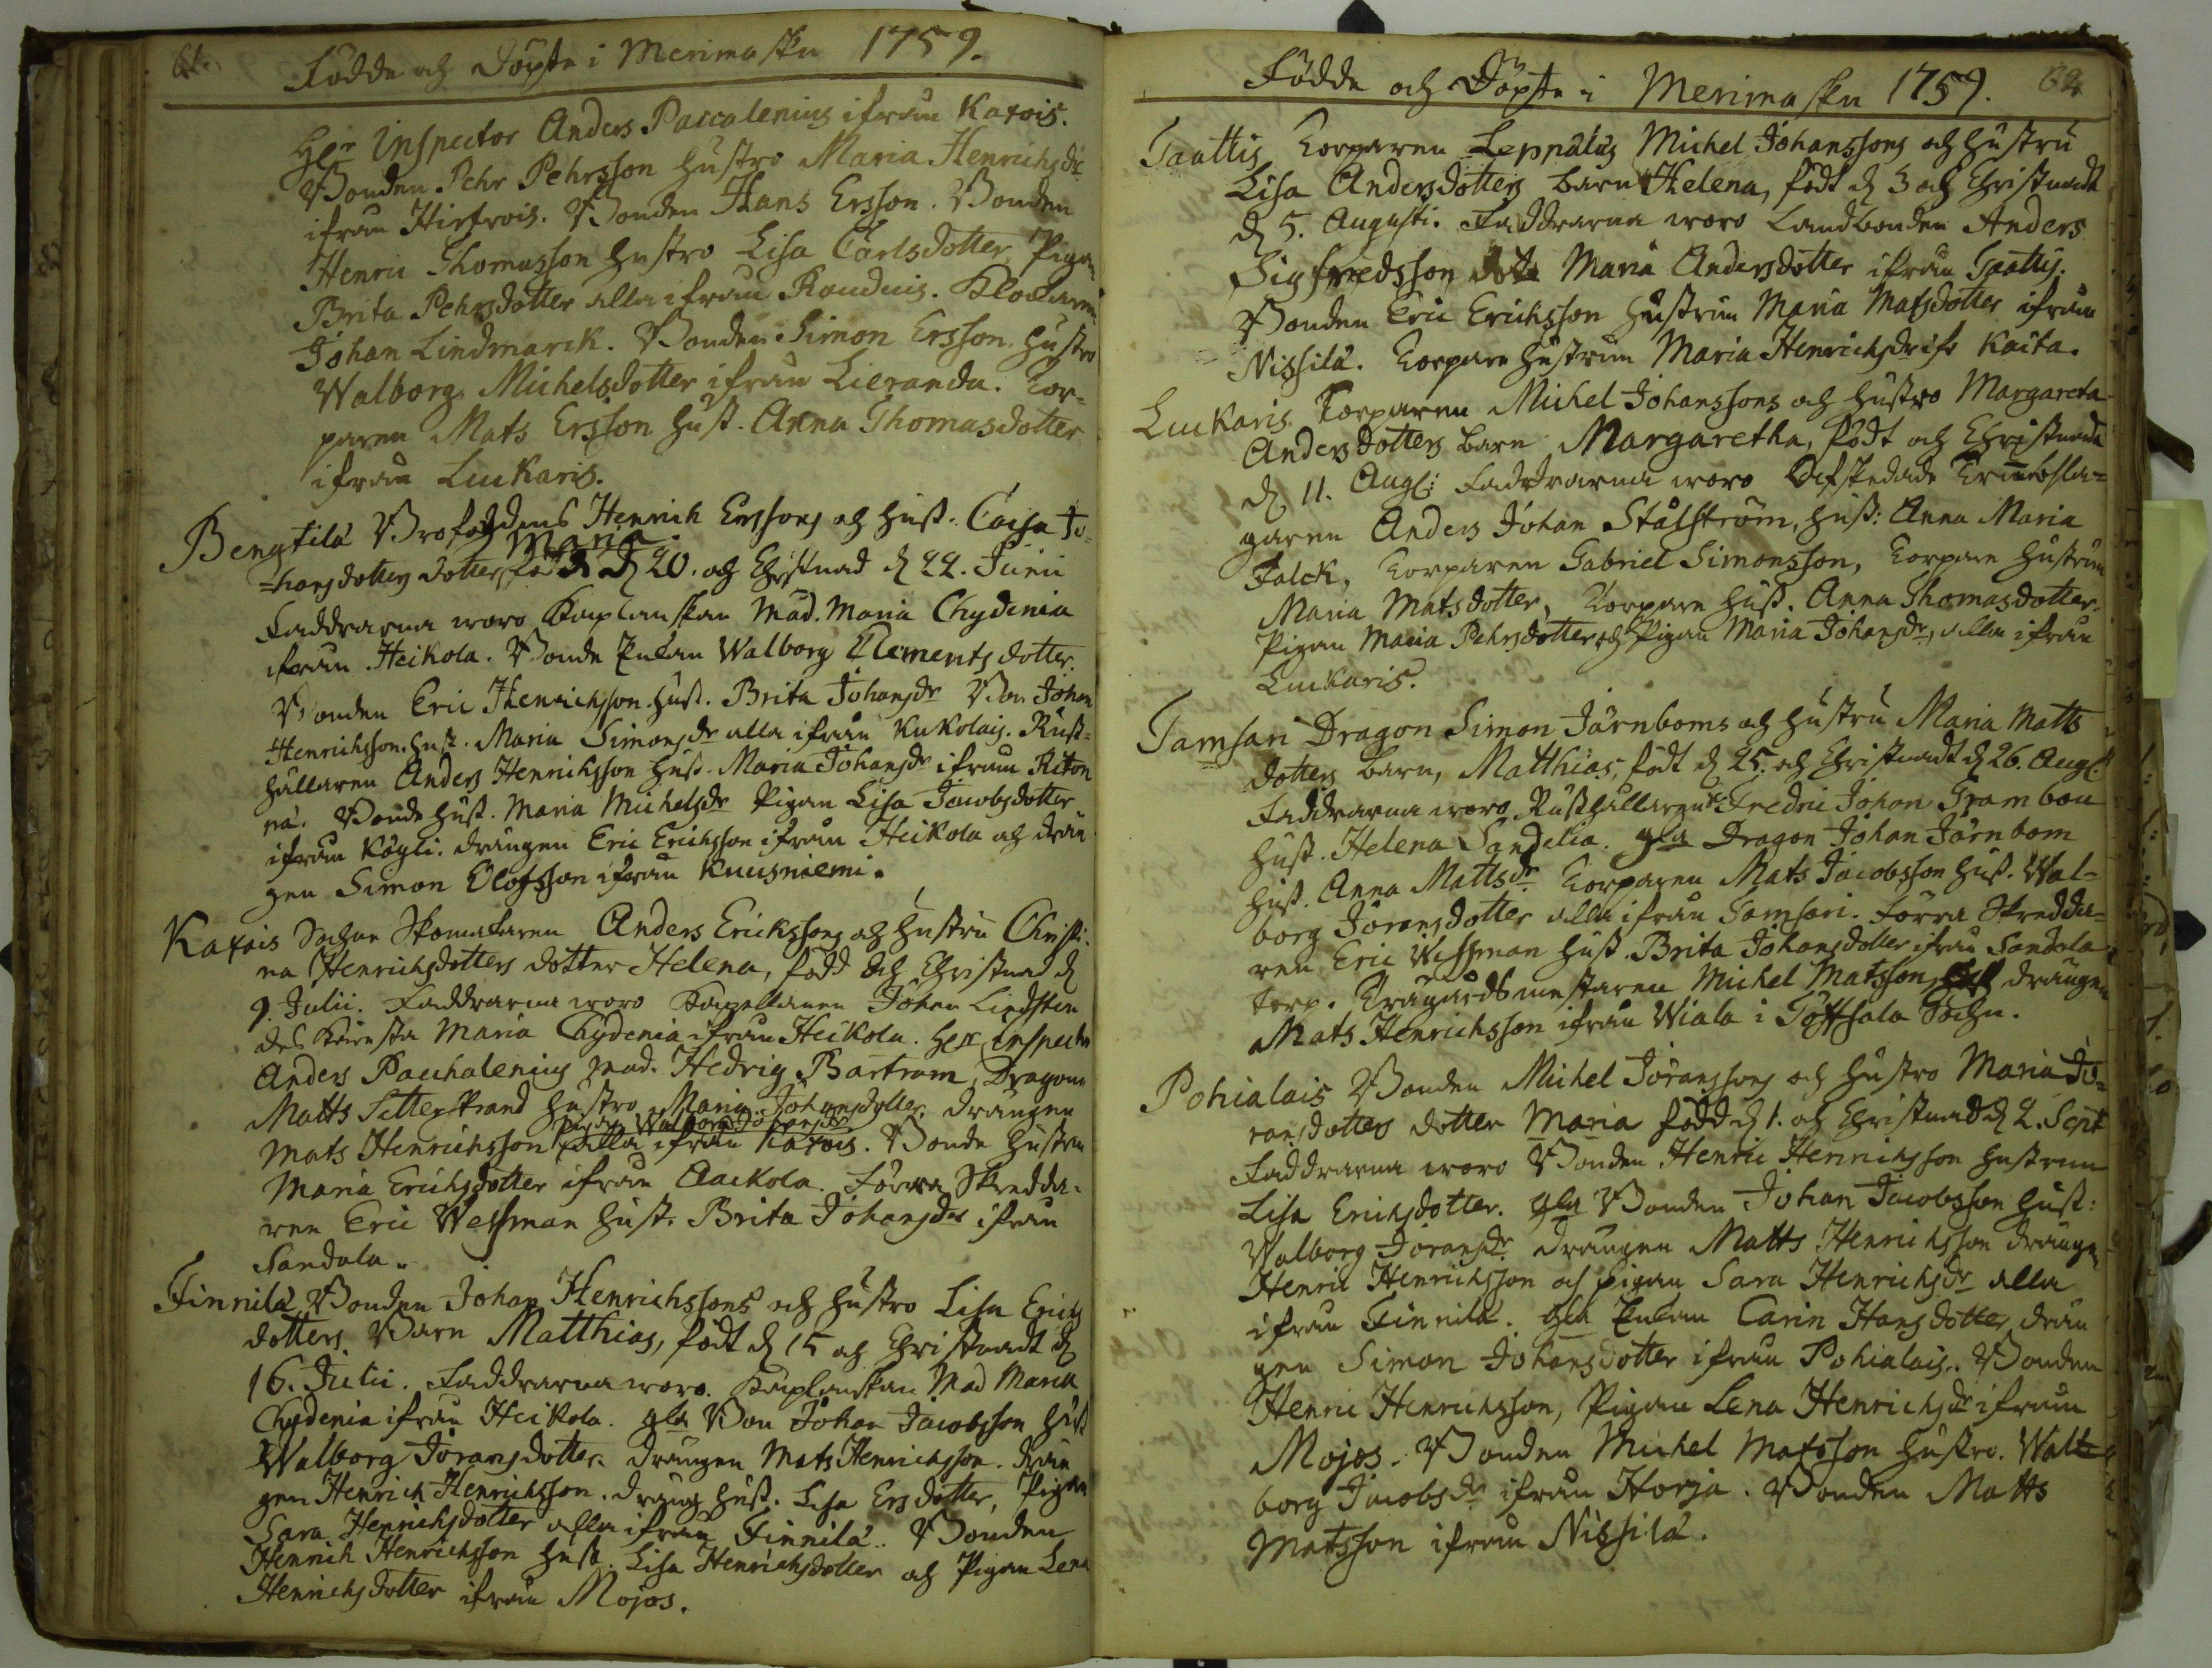 61.
Födde och Döpte i Merimasku 1759.
Her Inspector Anders Paccalenius ifrån Kaxois.
Bonden Pehr Pehrsson hustro Maria Henrichsdr
ifrån Hirfrois. Bonden Hans Ersson. Bonden
Henric Thomasson hustro Lisa Carlsdotter, Pigan
Brita Pehrsdotter alla ifrån Rauduis. Klockaren
Johan Lindmarck. Bonden Simon Ersson hustro
Walborg Michelsdotter ifrån Lieranda. Tor-
paren Mats Ersson hust. Anna Thomasdotter
ifrån Luckaris.
Bengtilä Henrich Erssons och hust. Caisa Jo-
Maria
hansdotters dotter, född d 20. och Christnad d 22. Junii
Faddrarna woro Kaplanskan Mad. Maria Chydenia
ifrån Heikola. Bonde Enkan Walborg Clementsdotter.
Bonden Eric Henrichsson hust. Brita Johansdr Bon Johan
Henrichsson hust. Maria Simonsdr alla ifrån Kukolais. Rust-
hållaren Anders Henrichsson hust. Maria Johansdr ifrån Riton
nä. Bonde hust. Maria Michelsdr Pigan Lisa Jacobsdotter
ifrån Kögli. drängen Eric Erichsson ifrån Heikola och drän
gen Simon Olofsson ifrån Kuusniemi.
Kaxois Sochne Skomakaren Anders Erickssons och hustru Christi-
na Henrichsdotters dotter Helena, född och Christnad d
9. Julii. Faddrarna woro Kapellanen Johan Lindsten
des Käresta Maria Chydenia ifrån Heikola. Her Inspector
Anders Pacchalenius Mad. Hedvig Bartram, Dragon
Matts Setterstrand hustro Maria Johansdotter. drängen
Pigan Walborg Johansdr
Mats Henrichsson alla ifrån Kaxois. Bonde hustru
Maria Erichsdotter ifrån Aackola. Förra Skredda-
ren Eric Wessman hust. Brita Johansdr ifrån
Sandala.
Finnilä Bonden Johan Henrichssons och hustro Lisa Erichs
dotters Barn Matthias, födt d 15 och Christnadt d
16. Julii. Faddrarna woro. Kaplanskan Mad Maria
Chydenia ifrån Heikola. gla Bon Johan Jacobsson hust
Walborg Jöransdotter. drängen Mats Henrichsson. drän
gen Henrich Henrichsson. drängs hust. Lisa Ersdotter, Pigan
Sara Henrichsdotter alla ifrån Finnilä. Bonden
Henrich Henrichsson hust. Lisa Henrichsdotter och Pigan Lena
Henrichsdotter ifrån Mojos.
62
Födde och Döpte i Merimasku 1759.
Taattis Torparen Leppälus Michel Johanssons och hustru
Lisa Andersdotters barn Helena, födt d 3 och Christnadt
d 5. Augusti. Faddrarna woro Landbonden Anders
Sigfredsson Maria Andersdotter ifrån Taattis.
Bonden Eric Erichsson hustrun Maria Matsdotter ifrån
Nissilä. Torpare hustrun Maria Henrichsdr ifr Kaita.
Luckaris Torparen Michel Johanssons och hustro Margareta
Andersdotters barn Margaretha, födt och Christnadt
d 11. Aug: Faddrarna woro Afskedade Trumbsla-
garen Anders Johan Stålström, hust: Anna Maria
Falck, Torparen Gabriel Simonsson, Torpare hustrun
Maria Matsdotter, Torpare hust. Anna Thomasdotter,
Pigan Maria Pehrsdotter och Pigan Maria Johansdr, alla ifrån
Luckaris.
Tamsari Dragon Simon Järnboms och hustru Maria Matts
dotters barn, Matthias, födt d 25. och Christnadt d 26. Aug.
Faddrarna woro Rusthållaren Fredric Johan Trambou
hust. Helena Sandelia. gla Dragon Johan Järnbom
hust. Anna Mattsdr Torparen Mats Jacobsson hust. Wal-
borg Jöransdotter alla ifrån Tamsari. Förra Skredda-
ren Eric Wessman hust. Brita Johansdotter ifrån Sandala
torp. Trägårdsmestaren Michel Matsson, drängen
Mats Henrichsson ifrån Wiala i Töfsala Sochn.
Pohialais Bonden Michel Jöranssons och hustro Maria Jö-
ransdotters dotter Maria född d 1. och Christnad d 2. Sept
Faddrarna woro Bonden Henric Henrichsson hustrun
Lisa Erichsdotter. gla Bonden Johan Jacobsson hust:
Walborg Jöransdr drängen Matts Henrichsson drängen
Henric Henrichsson och Pigan Sara Henrichsdr alla
ifrån Finnilä. gla Enkan Carin Hansdotter, drän
gen Simon Johansdotter ifrån Pohialais. Bonden
Henric Henrichsson, Pigan Lena Henrichsdr ifrån
Mojos. Bonden Michel Matsson hustro. Walb
borg Jacobsdr ifrån Horja. Bonden Matts
Matsson ifrån Nissilä.